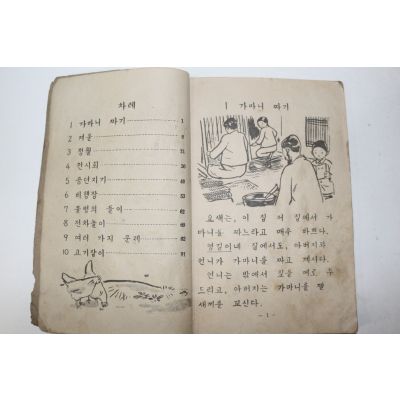 차례
1 가마니 짜기 1
2 겨울 8
3 정월
4 전시회
5 공던지기
6 비행장
7 흥범의 들이 62
8 전차놀이
9 여러 가지 문제
10 고기잡이
1 가마니 짜기
요새는, 이 집 저 집에서 가
마니를 짜느라고 매우 바쁘다.
영길이네 집에서도, 아버지와
언니가 가마니를 짜고 계시다.
언니는 밖에서 짚을 메로 두
드리고, 아버지는 가마니를 짤
새끼를 꼬신다.
- 1 -